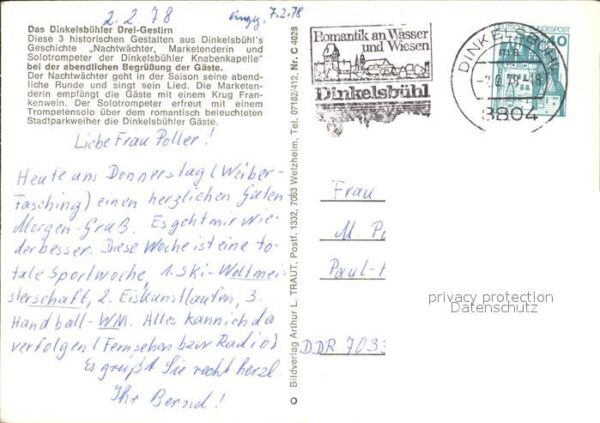 2.2.78
7.2.78
Das Dinkelsbühler Drei-Gestirn
Diese 3 historischen Gestalten aus Dinkelsbühl's
Geschichte „Nachtwächter, Marketenderin und
Solotrompeter der Dinkelsbühler Knabenkapelle"
bei der abendlichen Begrüßung der Gäste.
Der Nachtwächter geht in der Saison seine abend-
liche Runde und singt sein Lied. Die Marketen-
derin empfängt die Gäste mit einem Krug Fran-
kenwein. Der Solotrompeter erfreut mit einem
Trompetensolo über dem romantisch beleuchteten
Stadtparkweiher die Dinkelsbühler Gäste.
Liebe Frau Poller!
Heute am Donnerstag (Weiber-
fasching) einen herzlichen Guten-
Morgen-Gruß. Es geht mir wie-
der besser. Diese Woche ist eine to-
tale Sportwoche, 1. Ski-Weltmei-
sterschaft, 2. Eiskunstlaufen, 3.
Handball-WM. Alles kann ich da
verfolgen (Fernsehen bzw Radio)
Es grüßt Sie recht herzl.
Ihr Bernd!
Bildverlag Arthur L. TRAUT, Postf. 1332, 7063 Welzheim, Tel. 07182/412, Nr. C 4628
Romantik an Wasser
und Wiesen
Dinkelsbühl
DINKELSBÜHL
8804
DEUTSCHE BUNDESPOST
40
Frau
M. P
Paul-
DDR 703
privacy protection
Datenschutz